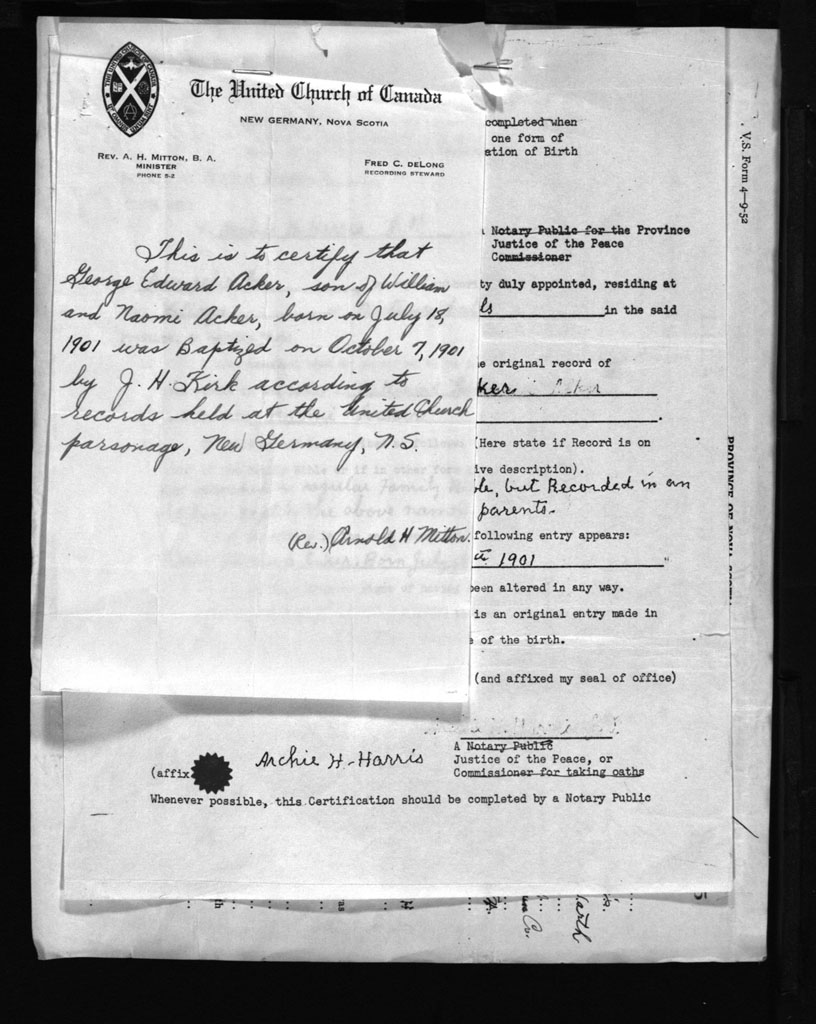 The United Church of Canada
NEW GERMANY, NOVA SCOTIA
REV. A. H. MITTON, B. A.
MINISTER
PHONE 5-2
FRED C. DELONG
RECORDING STEWARD
This is to certify that
George Edward Acker, son of William
and Naomi Acker, born on July 18,
1901 was Baptized on October 7, 1901
by J. H. Kirk according to
records held at the United Church
parsonage, New Germany, N.S.
(Rev.) Arnold H Mitton.
completed when
one form of
ation of Birth
V.S. Form 4-9-52
Notary Public for the Province
Justice of the Peace
Commissioner
ty duly appointed, residing at
ls in the said
e original record of
ker
(Here state if Record is on
ive description).
ble, but Recorded in an
parents.
following entry appears:
1901 "
een altered in any way.
is an original entry made in
e of the birth.
(and affixed my seal of office)
Archie H. Harris
(affix
A Notary Public
Justice of the Peace, or
Commissioner for taking oaths
Whenever possible, this Certification should be completed by a Notary Public
PROVINCE OF NOVA SCOTIA